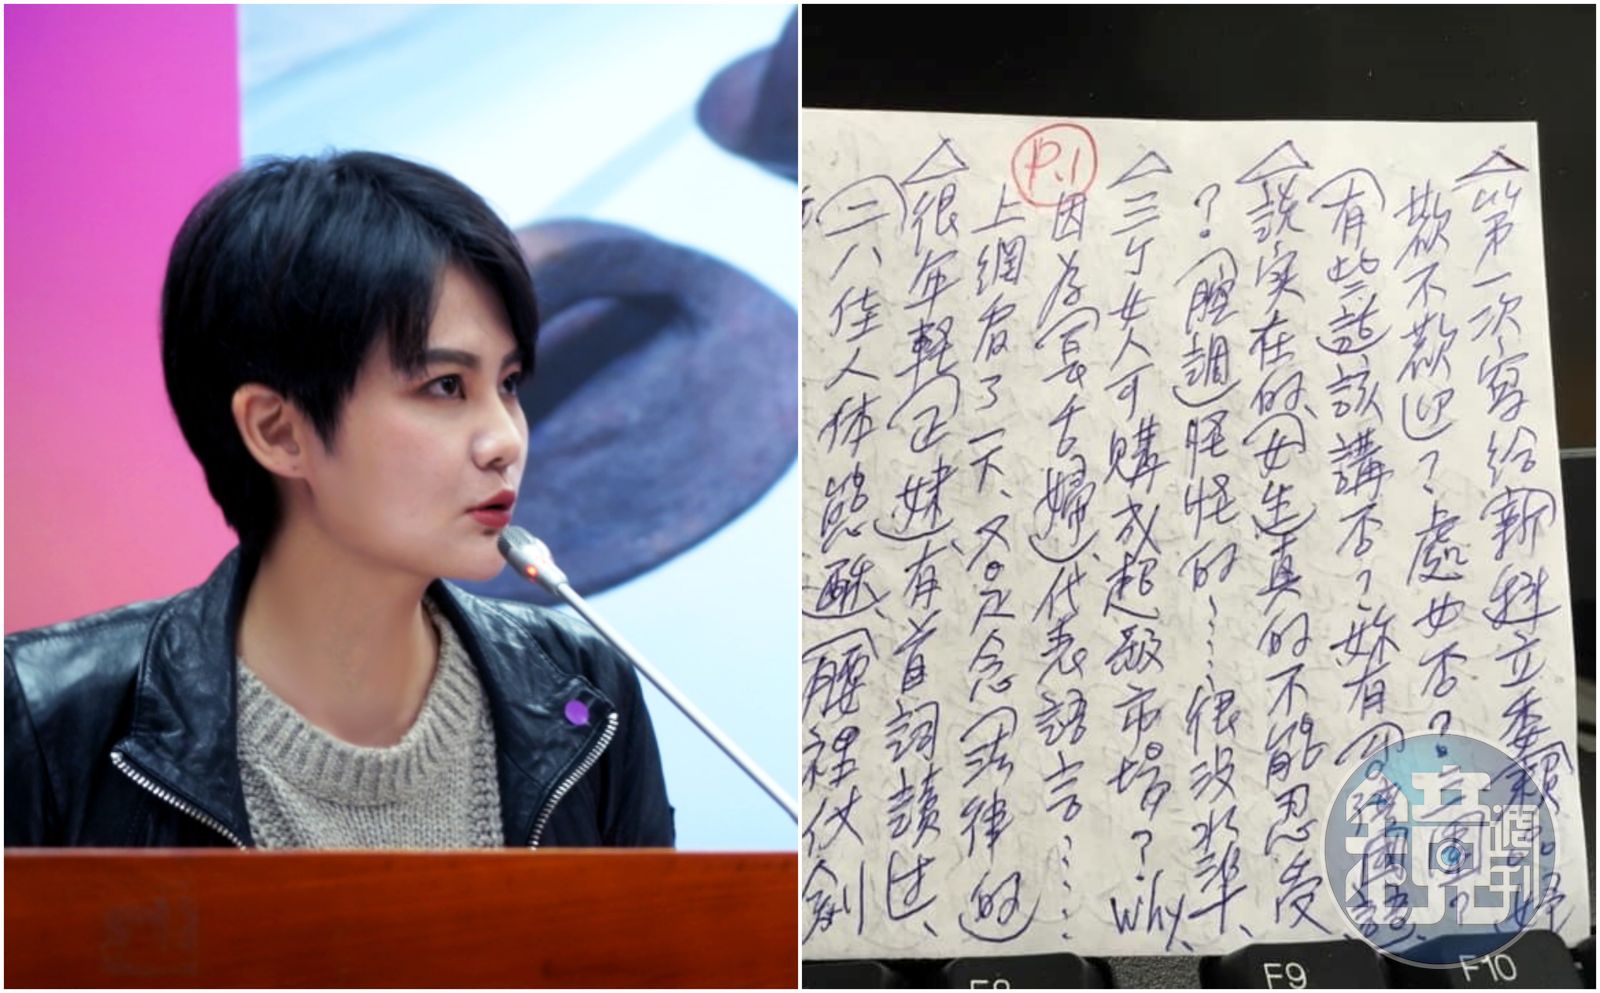 P.1
△第一次、寫給新科立委賴品妤
歡不歡迎?處女否?
有些話該講否?妳有國語
△說实在的女生真的不能忍受
?腔調怪怪的……很沒水準、
△三个女人可購成超級市場?Why、
因為長舌婦、代表語言……
上網看了一下、又是念法律的
△很年輕正妹、有首詞讀过、
二八佳人体態酥、腰裡仗劍
F9
F10